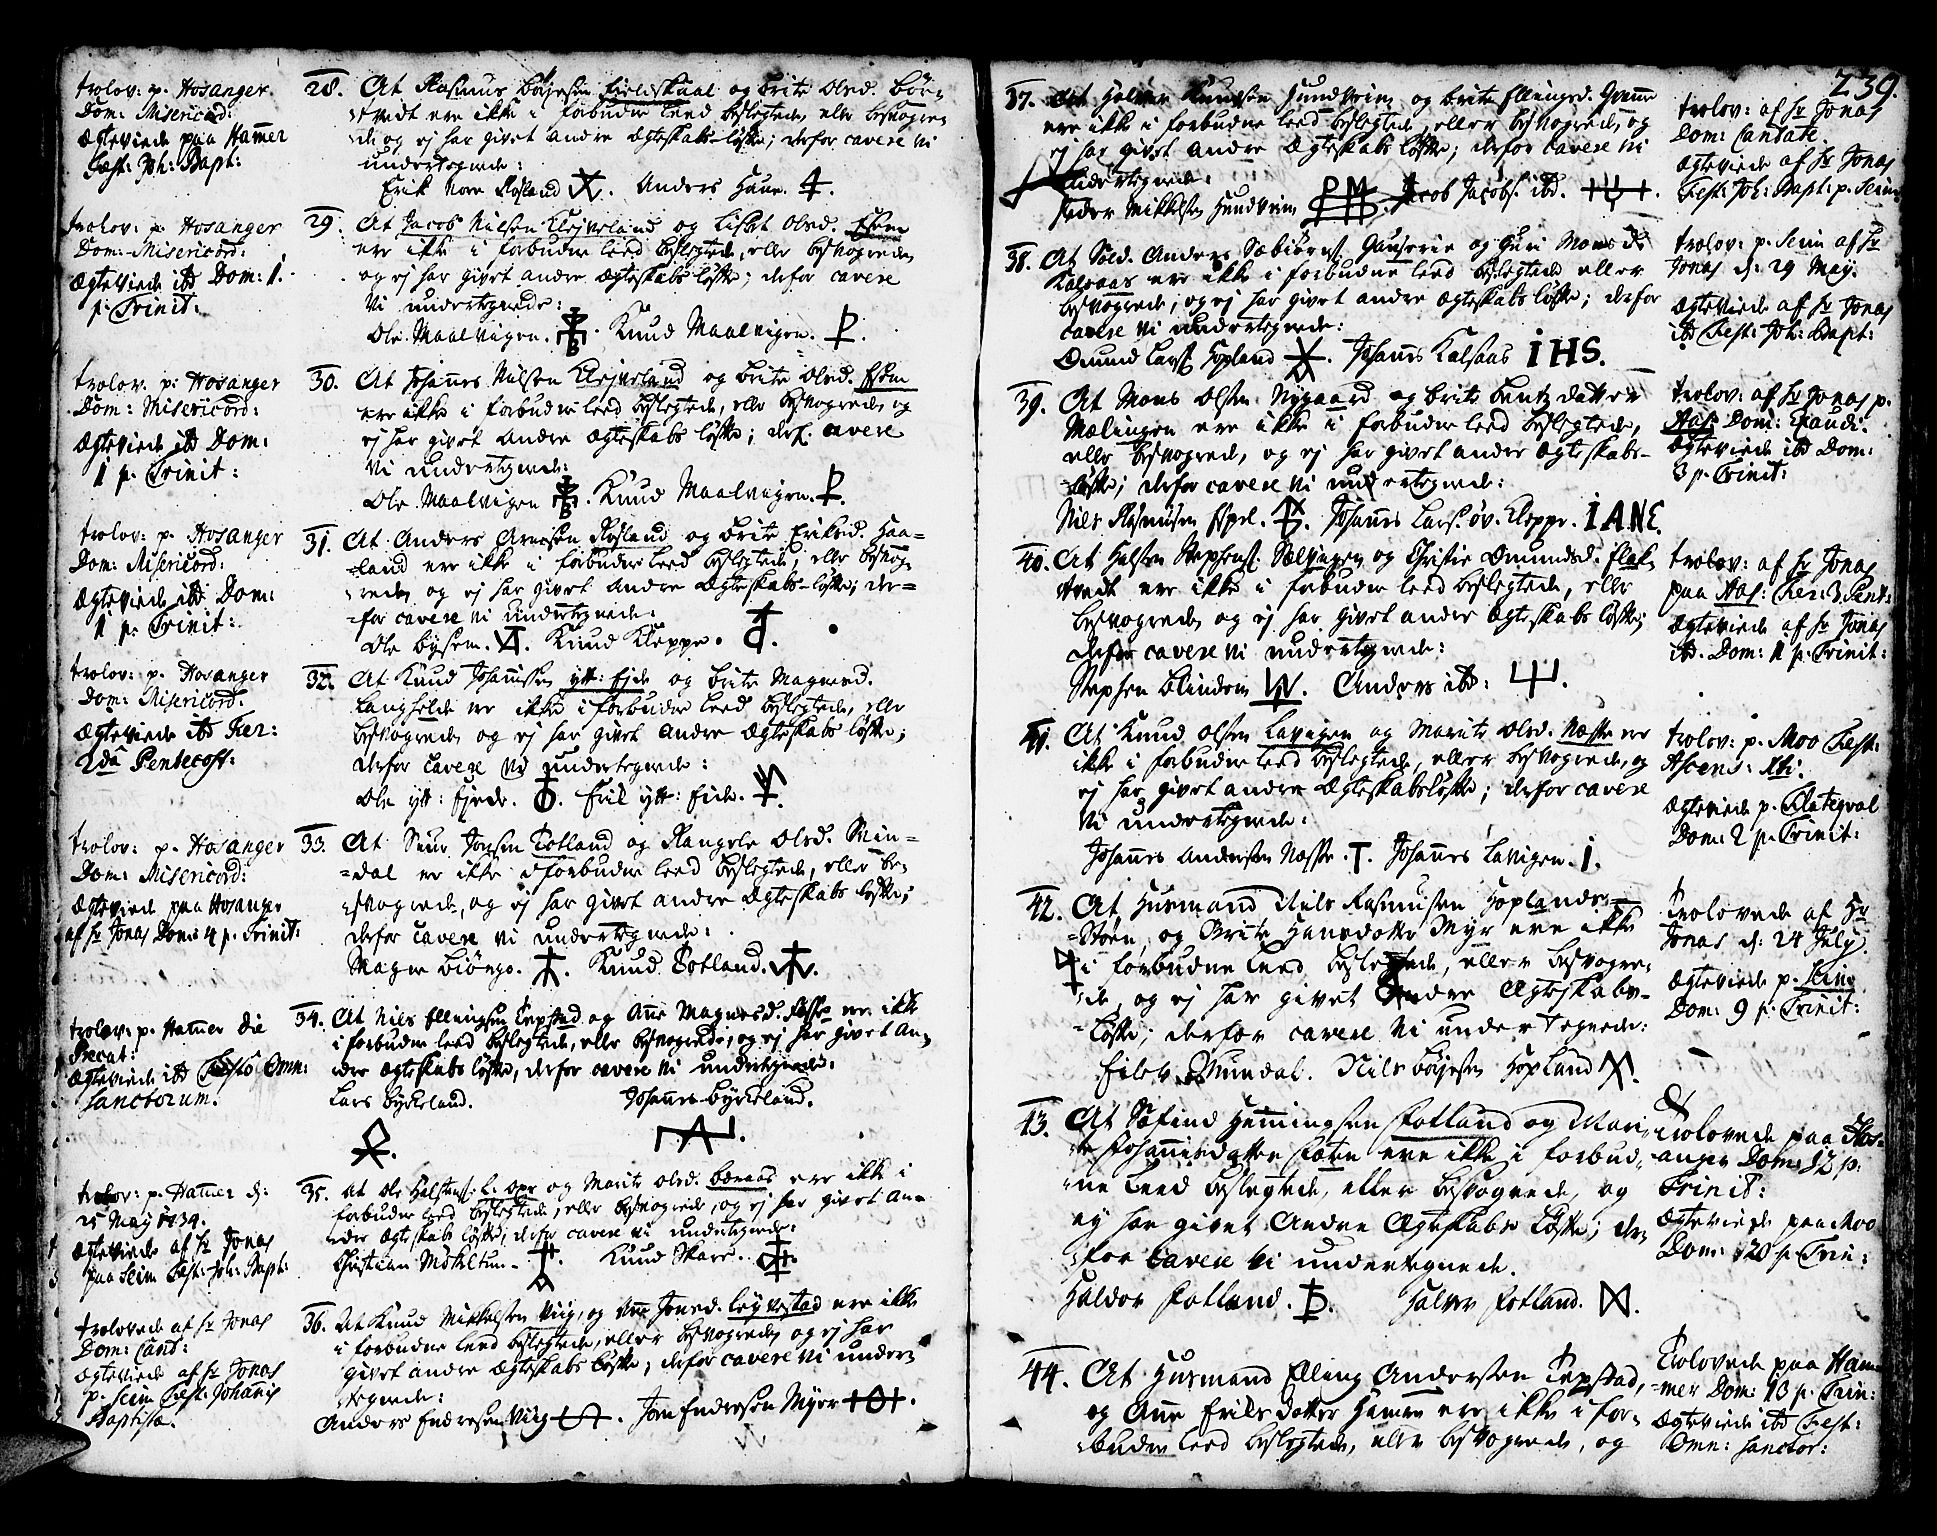 trolov: p. Hosanger
Dom: Misericord:
Ægteviede paa Ham̄er
Fest: Joh: Bapt:
28. At Rasmus Börjesen Fieldskaal og Brite Olsd. Bör-
-tvedt ere ikke i forbudne Leed beslegtede, eller besvogre-
-de og ej har givet andre Ægteskabs-Løfte; derfor cavere vi
undertegnede:
Erik Nore Røsland Anders Haue.
trolov: p. Hosanger
Dom: Misericord:
Ægteviede ibd Dom: 1.
p. Trinit:
29. At Jacob Nilsen Klejveland og Lisbet Olsd.
ere ikke i forbudne Leed beslegtede, eller besvogrede
og ej har givet andre Ægteskabs Løfte; derfor cavere
vi undertegnede:
Ole Maalvigen. Knud Maalvigen.
trolov. p: Hosanger
Dom: Misericord:
Ægteviede ibd Dom:
1 p. Trinit:
30. At Johan̄es Nilsen Klejveland og Brite Olsd.
ere ikke i forbudne Leed beslegtede, eller besvogrede og
ej har givet andre Ægteskabs Løfte; derf. cavere
vi undertegnede:
Ole Maalvigen Knud Maalvigen.
trolov: p. Hosanger
Dom: Misericord:
Ægteviede ibd Dom:
1 p. Trinit:
31. At Anders Arnesen Røsland og Brite Eriksd. Haa-
-land ere ikke i forbudne Leed beslegtede, eller besvog-
-rede og ej har givet andre Ægteskabs-Løfte; der-
-for cavere vi undertegnede:
Ole Bysem. Knud Kleppe.
trolov: p. Hosanger
Dom: Misericord.
Ægteviede ibd Fer:
2da Pentecost:
32. At Knud Johan̄essen ytt: Ejde og Brite Magnesd.
Langhelde ere ikke i forbudne Leed beslegtede, eller
besvogrede og ej har givet andre Ægteskabs Løfte;
derfor cavere vi undertegnede:
Ole ytt: Ejede. Erik ytt: Eide.
trolov: p. Hosanger
Dom: Misericord:
Ægteviede paa Hosanger
af Hr Jonas Dom: 4 p. Trinit:
33. At Siur Jonsen Fotland og Rangele Olsd. Min-
-dal ere ikke i forbudne Leed beslegtede, eller be-
-svogrede, og ej har givet andre Ægteskabs Løfte;
derfor cavere vi undertegnede:
Magne Biönge. Knud Fotland.
trolov: p. Ham̄er die
Precat:
Ægteviede ibd Festo Omn:
Sanctorum.
34. At Nils Ellingsen Tepstad og An̄e Magnesd. Fosse ere ikke
i forbudne Leed beslegtede, eller besvogrede, og ej har givet An-
-dre Ægteskabs Løfte, derfor cavere vi undertegnede:
Lars Byrkeland. Johan̄es Byrkeland.
trolov: p. Ham̄er d:
25 May 1734.
Ægteviede af Hr Jonas
paa Seim Fest: Joh: Bapt:
35. At Ole Halstens: og Marite Olsd. ere ikke i
forbudne Leed beslegtede, eller besvogrede, og ej har givet An-
-dre Ægteskabs Løfte, derfor cavere vi undertegnede:
Christian Mökeltun. Knud Skare.
trolovede af Hr Jonas
Dom: Cand:
Ægteviede af Hr Jonas
p. Seim Fest: Johan̄is
Baptistæ.
36. At Knud Mikkelsen Viig, og An̄e Jonsd. Leyvestad ere ikke
i forbudne Leed beslegtede, eller besvogrede og ej har
givet andre Ægteskabs Løfte; derfor cavere vi under-
-tegnede:
Anders Endresen Viig. Jon Endresen Myer
239.
37. At Halvor Knudsen Hundvin og Brite Ellingsd.
ere ikke i forbudne Leed beslegtede, eller besvogrede, og
ej har givet andre Ægteskabs Løfte; derfor cavere vi
undertegnede:
Peder Mikkelsen Hundvin Jacob Jacobs. ibd.
trolov: af Hr Jonas
Dom: Cantate.
Ægteviede af Hr Jonas
Fest: Joh: Bapt: p. Seim
38. At Sold. Anders og Guri Mons dr
Kalsaas ere ikke i forbudne Leed beslegtede eller
besvogrede, og ej har givet andre Ægteskabs Løfte; derfor
cavere vi undertegnede:
Omund Lars: Hopland Johan̄es Kalsaas IHS.
trolov: p. Seim af Hr
Jonas d: 29 May.
Ægteviede af Hr Jonas
ibd Fest: Joh: Bapt:
39. At Mons Olsen Nygaard og Brite Bentz datter
Mælingen ere ikke i forbudne Leed beslegtede,
eller besvogrede, og ej har givet andre Ægteskabs-
-Løfte; derfor cavere vi undertegnede:
Nils Rasmusen Espel. Johan̄es Lars: öv. Kleppe. IANE.
trolov: af Hr Jonas p.
Has: Dom: Exaudi.
Ægteviede ibd Dom:
3 p. Trinit:
40. At Halsten Stephens: Sælvigen og Christie Omundsd. Flat-
-tvedt ere ikke i forbudne Leed beslegtede, eller
besvogrede og ej har givet andre Ægteskabs Løfte;
derfor cavere vi undertegnede:
Stephen Blindem Anders ibd:
trolov: af Hr Jonas
paa Has: Fer: 3. Pent:
Ægteviede af Hr Jonas
ibd. Dom: 1 p. Trinit:
41. At Knud Olsen Lavigen og Marite Olsd. Næsse ere
ikke i forbudne Leed beslegtede, eller besvogrede, og
ej har givet andre Ægteskabs Løfte; derfor cavere
vi undertegnede:
Johan̄es Andersen Næsse. T. Johan̄es Lavigen. I.
trolov: p. Moo Fest:
Ascens: Xti.
Ægteviede p. Flateqval
Dom: 2 p. Trinit:
42. At Husmand Nils Rasmusen Hoplands-
-Stöen, og Brite Hansdotter Myr ere ikke
i forbudne Leed beslegtede, eller besvogre-
-de, og ej har givet Andre Ægteskabs-
-Løfte; derfor cavere vi undertegnede:
Eilev Mundal. Nils Börjesen Hopland
Trolovede af Hr
Jonas d: 24 July.
Ægteviede p. Seim
Dom: 9 p. Trinit:
43. At Sæfind Hemingsen Fotland og Mari-
-te Johan̄isdatter ere ikke i forbud-
-ne Leed beslegtede, eller besvogrede, og
ej har givet Andre Ægteskabs Løfte; der-
-for cavere vi undertegnede.
Haldor Fotland. Halvor Fotland.
Trolovede paa Hos-
-anger Dom: 12 p.
Trinit:
Ægteviede paa Moo
Dom: 20 p. Trin:
44. At Husmand Elling Andersen Tepstad,
og An̄e Eriksdatter Hamre ere ikke i for-
-budne Leed beslegtede, eller besvogrede, og
Trolovede paa Ham-
-mer Dom: 13 p. Trin:
Ægteviede ibd Fest:
Omn: Sanctor: